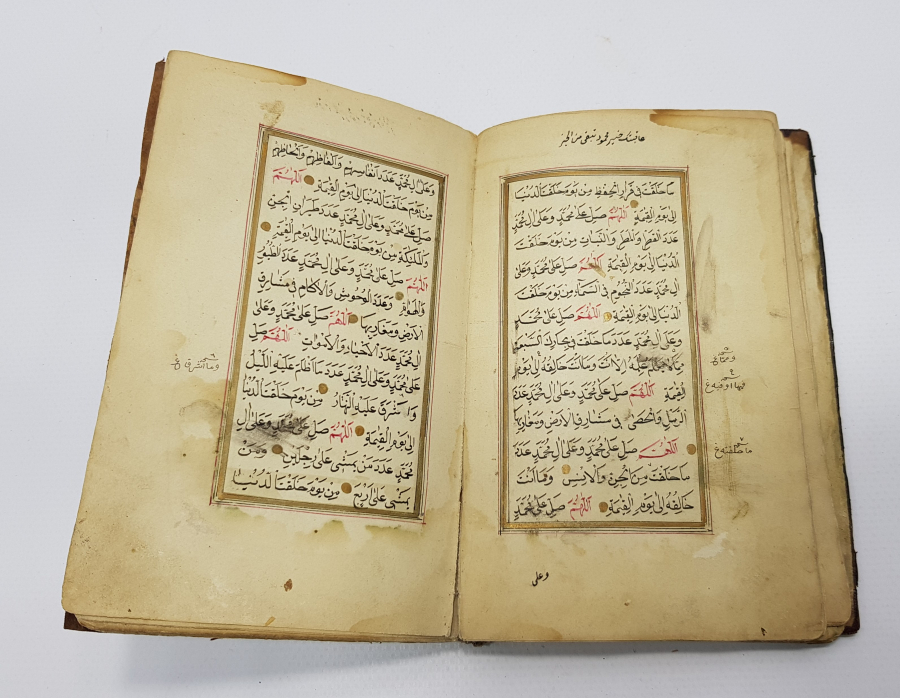 ما خلقت في قرار الحفظ من يوم خلقت الدنيا
الى يوم القيمة اللهم صل على محمد وعلى ال محمد
عدد القطر والمطر والنبات من يوم خلقت
الدنيا الى يوم القيمة اللهم صل على محمد وعلى
ال محمد عدد النجوم في السماء من يوم خلقت
الدنيا الى يوم القيمة اللهم صل على محمد
وعلى ال محمد عدد ما خلقت في بحارك السبعة
مما لا يعلم علمه الا انت وما انت خالقه الى يوم
القيمة اللهم صل على محمد وعلى ال محمد عدد
الرمل والحصى في مشارق الارض ومغاربها
اللهم صل على محمد وعلى ال محمد عدد
ما خلقت من الجن والانس وما انت
خالقه الى يوم القيمة اللهم صل على محمد
وعلى
وعلى ال محمد عدد انفاسهم والفاظهم والحاظهم
من يوم خلقت الدنيا الى يوم القيمة اللهم
صل على محمد وعلى ال محمد عدد طيران الجن
والملئكة من يوم خلقت الدنيا الى يوم القيمة
اللهم صل على محمد وعلى ال محمد عدد الطيور
والهوام وعدد الوحوش والاكام في مشارق
الارض ومغاربها اللهم صل على محمد وعلى
ال محمد عدد الاحياء والاموات اللهم صل
على محمد وعلى ال محمد عدد ما اظلم عليه الليل
واشرق عليه النهار من يوم خلقت الدنيا
الى يوم القيمة اللهم صل على محمد وعلى ال
محمد عدد من يمشى على رجلين ومن
يمشى على اربع من يوم خلقت الدنيا
وما اشرق